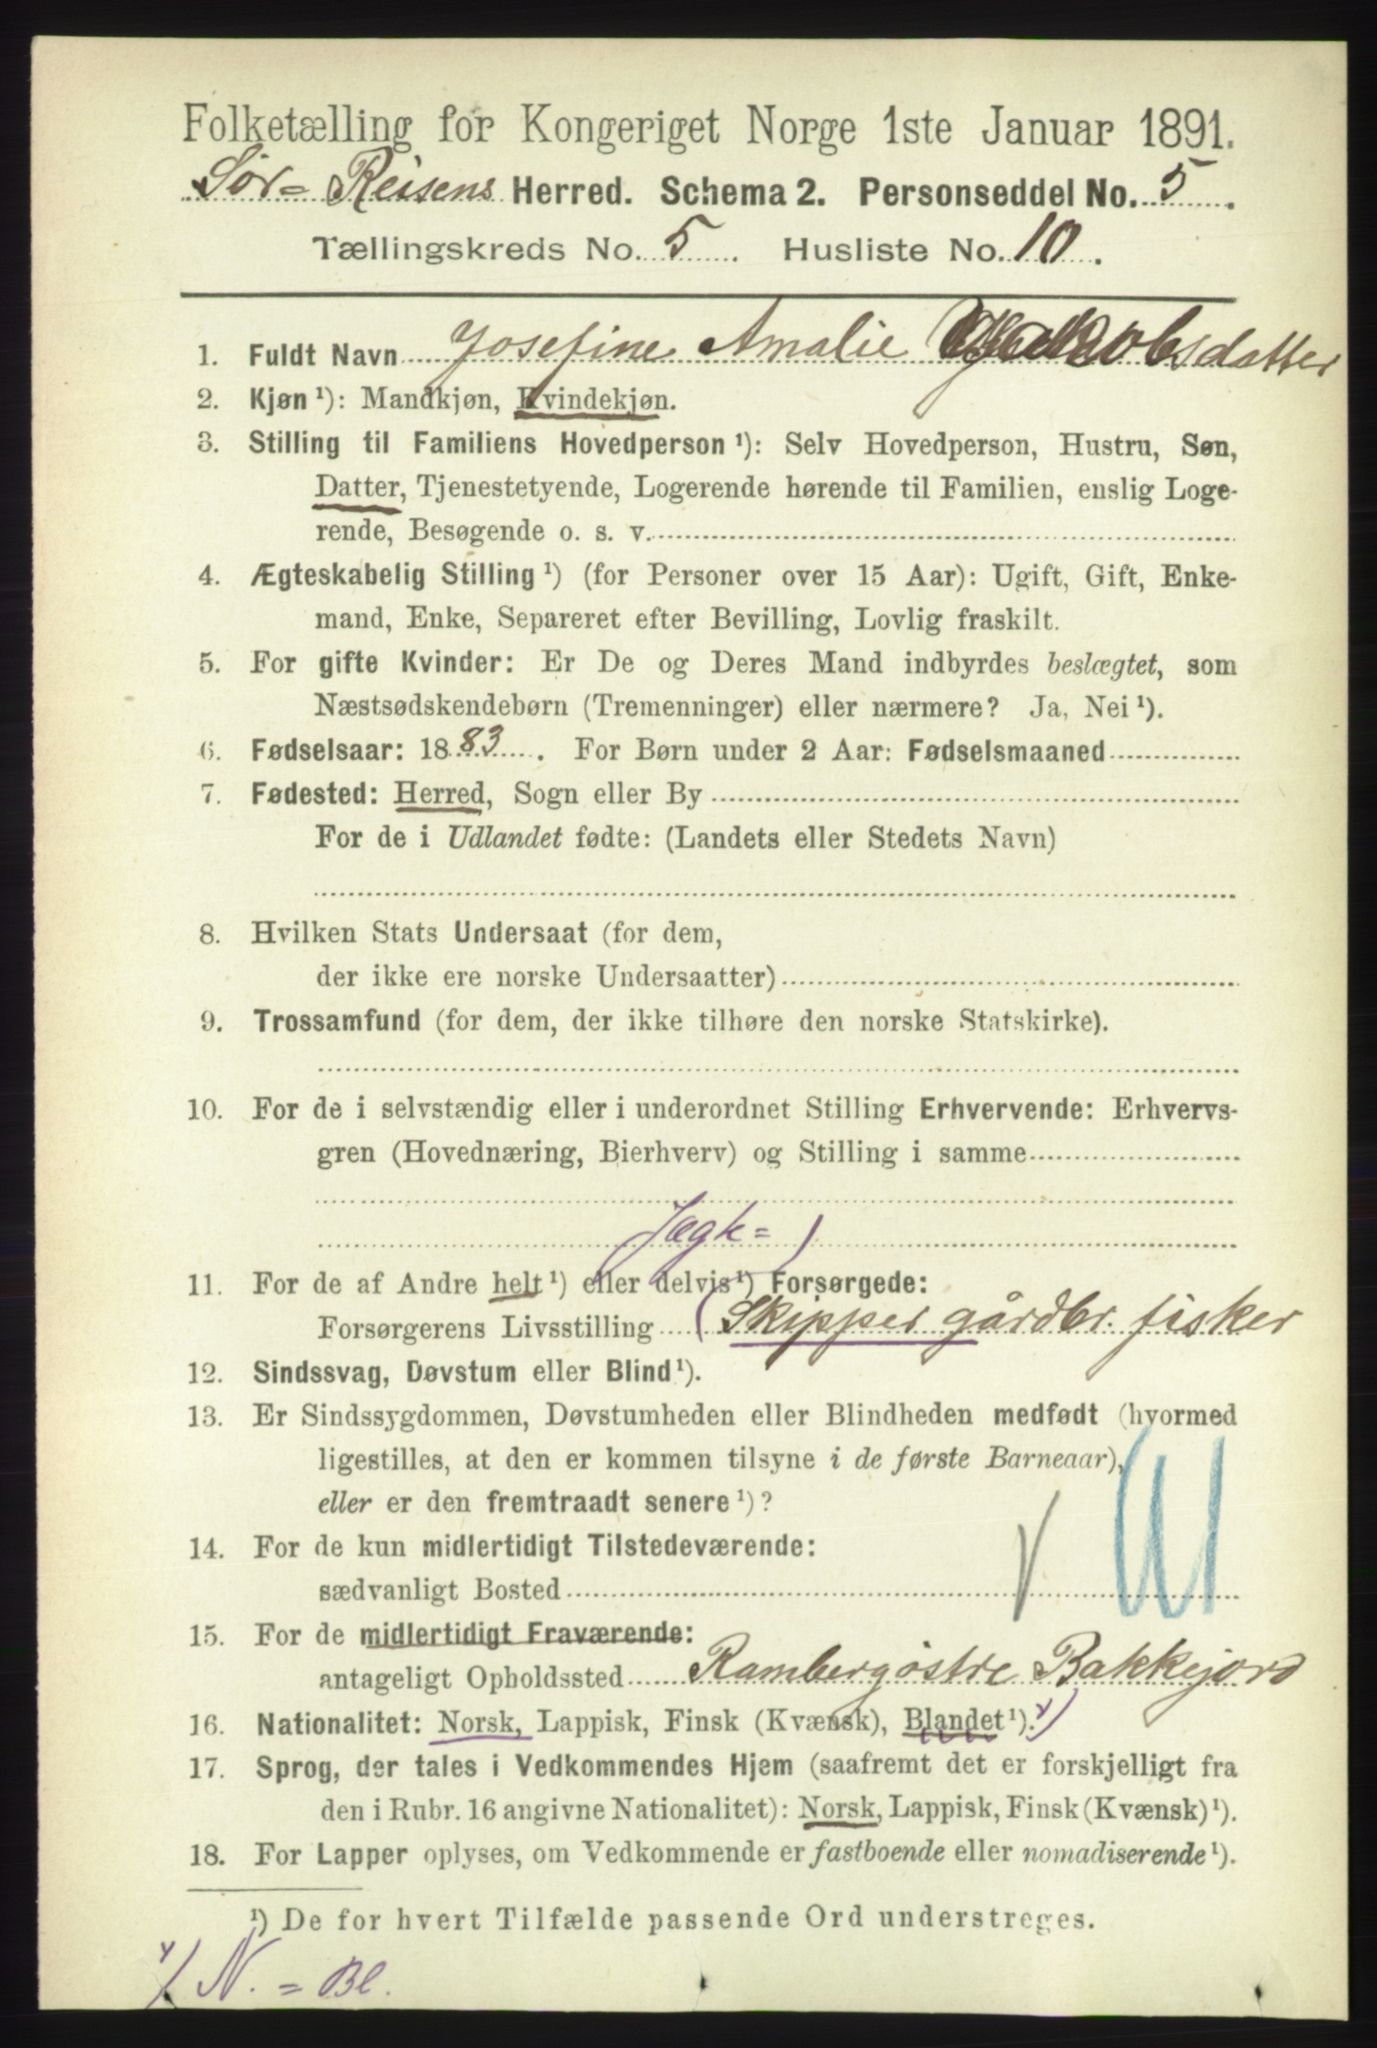 Folketælling for Kongeriget Norge 1ste Januar 1891.
Sør-Reisens Herred. Schema 2. Personseddel No. 5.
Tællingskreds No. 5. Husliste No. 10.
1. Fuldt Navn Josefine Amalie Jakobsdatter
2. Kjøn ¹): Mandkjøn, Kvindekjøn.
3. Stilling til Familiens Hovedperson ¹): Selv Hovedperson, Hustru, Søn,
Datter, Tjenestetyende, Logerende hørende til Familien, enslig Loge-
rende, Besøgende o. s. v.
4. Ægteskabelig Stilling ¹) (for Personer over 15 Aar): Ugift, Gift, Enke-
mand, Enke, Separeret efter Bevilling, Lovlig fraskilt.
5. For gifte Kvinder: Er De og Deres Mand indbyrdes beslægtet, som
Næstsødskendebørn (Tremenninger) eller nærmere? Ja, Nei ¹).
6. Fødselsaar: 1883. For Børn under 2 Aar: Fødselsmaaned
7. Fødested: Herred, Sogn eller By
For de i Udlandet fødte: (Landets eller Stedets Navn)
8. Hvilken Stats Undersaat (for dem,
der ikke ere norske Undersaatter)
9. Trossamfund (for dem, der ikke tilhøre den norske Statskirke).
10. For de i selvstændig eller i underordnet Stilling Erhvervende: Erhvervs-
gren (Hovednæring, Bierhverv) og Stilling i samme
(Jægt=)
11. For de af Andre helt ¹) eller delvis ¹) Forsørgede:
Forsørgerens Livsstilling (Skipper gårdbr. fisker
12. Sindssvag, Døvstum eller Blind ¹).
13. Er Sindssygdommen, Døvstumheden eller Blindheden medfødt (hvormed
ligestilles, at den er kommen tilsyne i de første Barneaar),
eller er den fremtraadt senere ¹)?
14. For de kun midlertidigt Tilstedeværende:
sædvanligt Bosted
15. For de midlertidigt Fraværende:
antageligt Opholdssted Rambergøstre Bakkejord
16. Nationalitet: Norsk, Lappisk, Finsk (Kvænsk), Blandet ¹). ʸ)
17. Sprog, der tales i Vedkommendes Hjem (saafremt det er forskjelligt fra
den i Rubr. 16 angivne Nationalitet): Norsk, Lappisk, Finsk (Kvænsk) ¹).
18. For Lapper oplyses, om Vedkommende er fastboende eller nomadiserende ¹).
¹) De for hvert Tilfælde passende Ord understreges.
ʸ) N. = Bl.